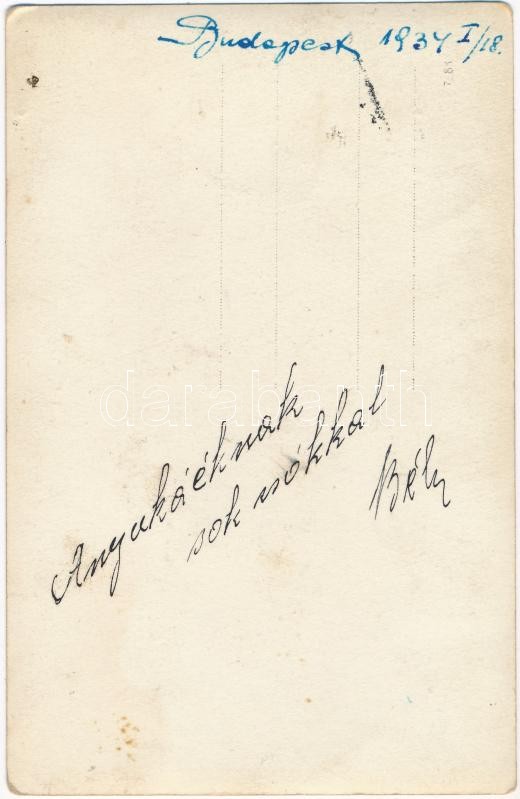 Budapest 1934 I/18.
Anyukáéknak
sok csókkal
Béla
darabanth